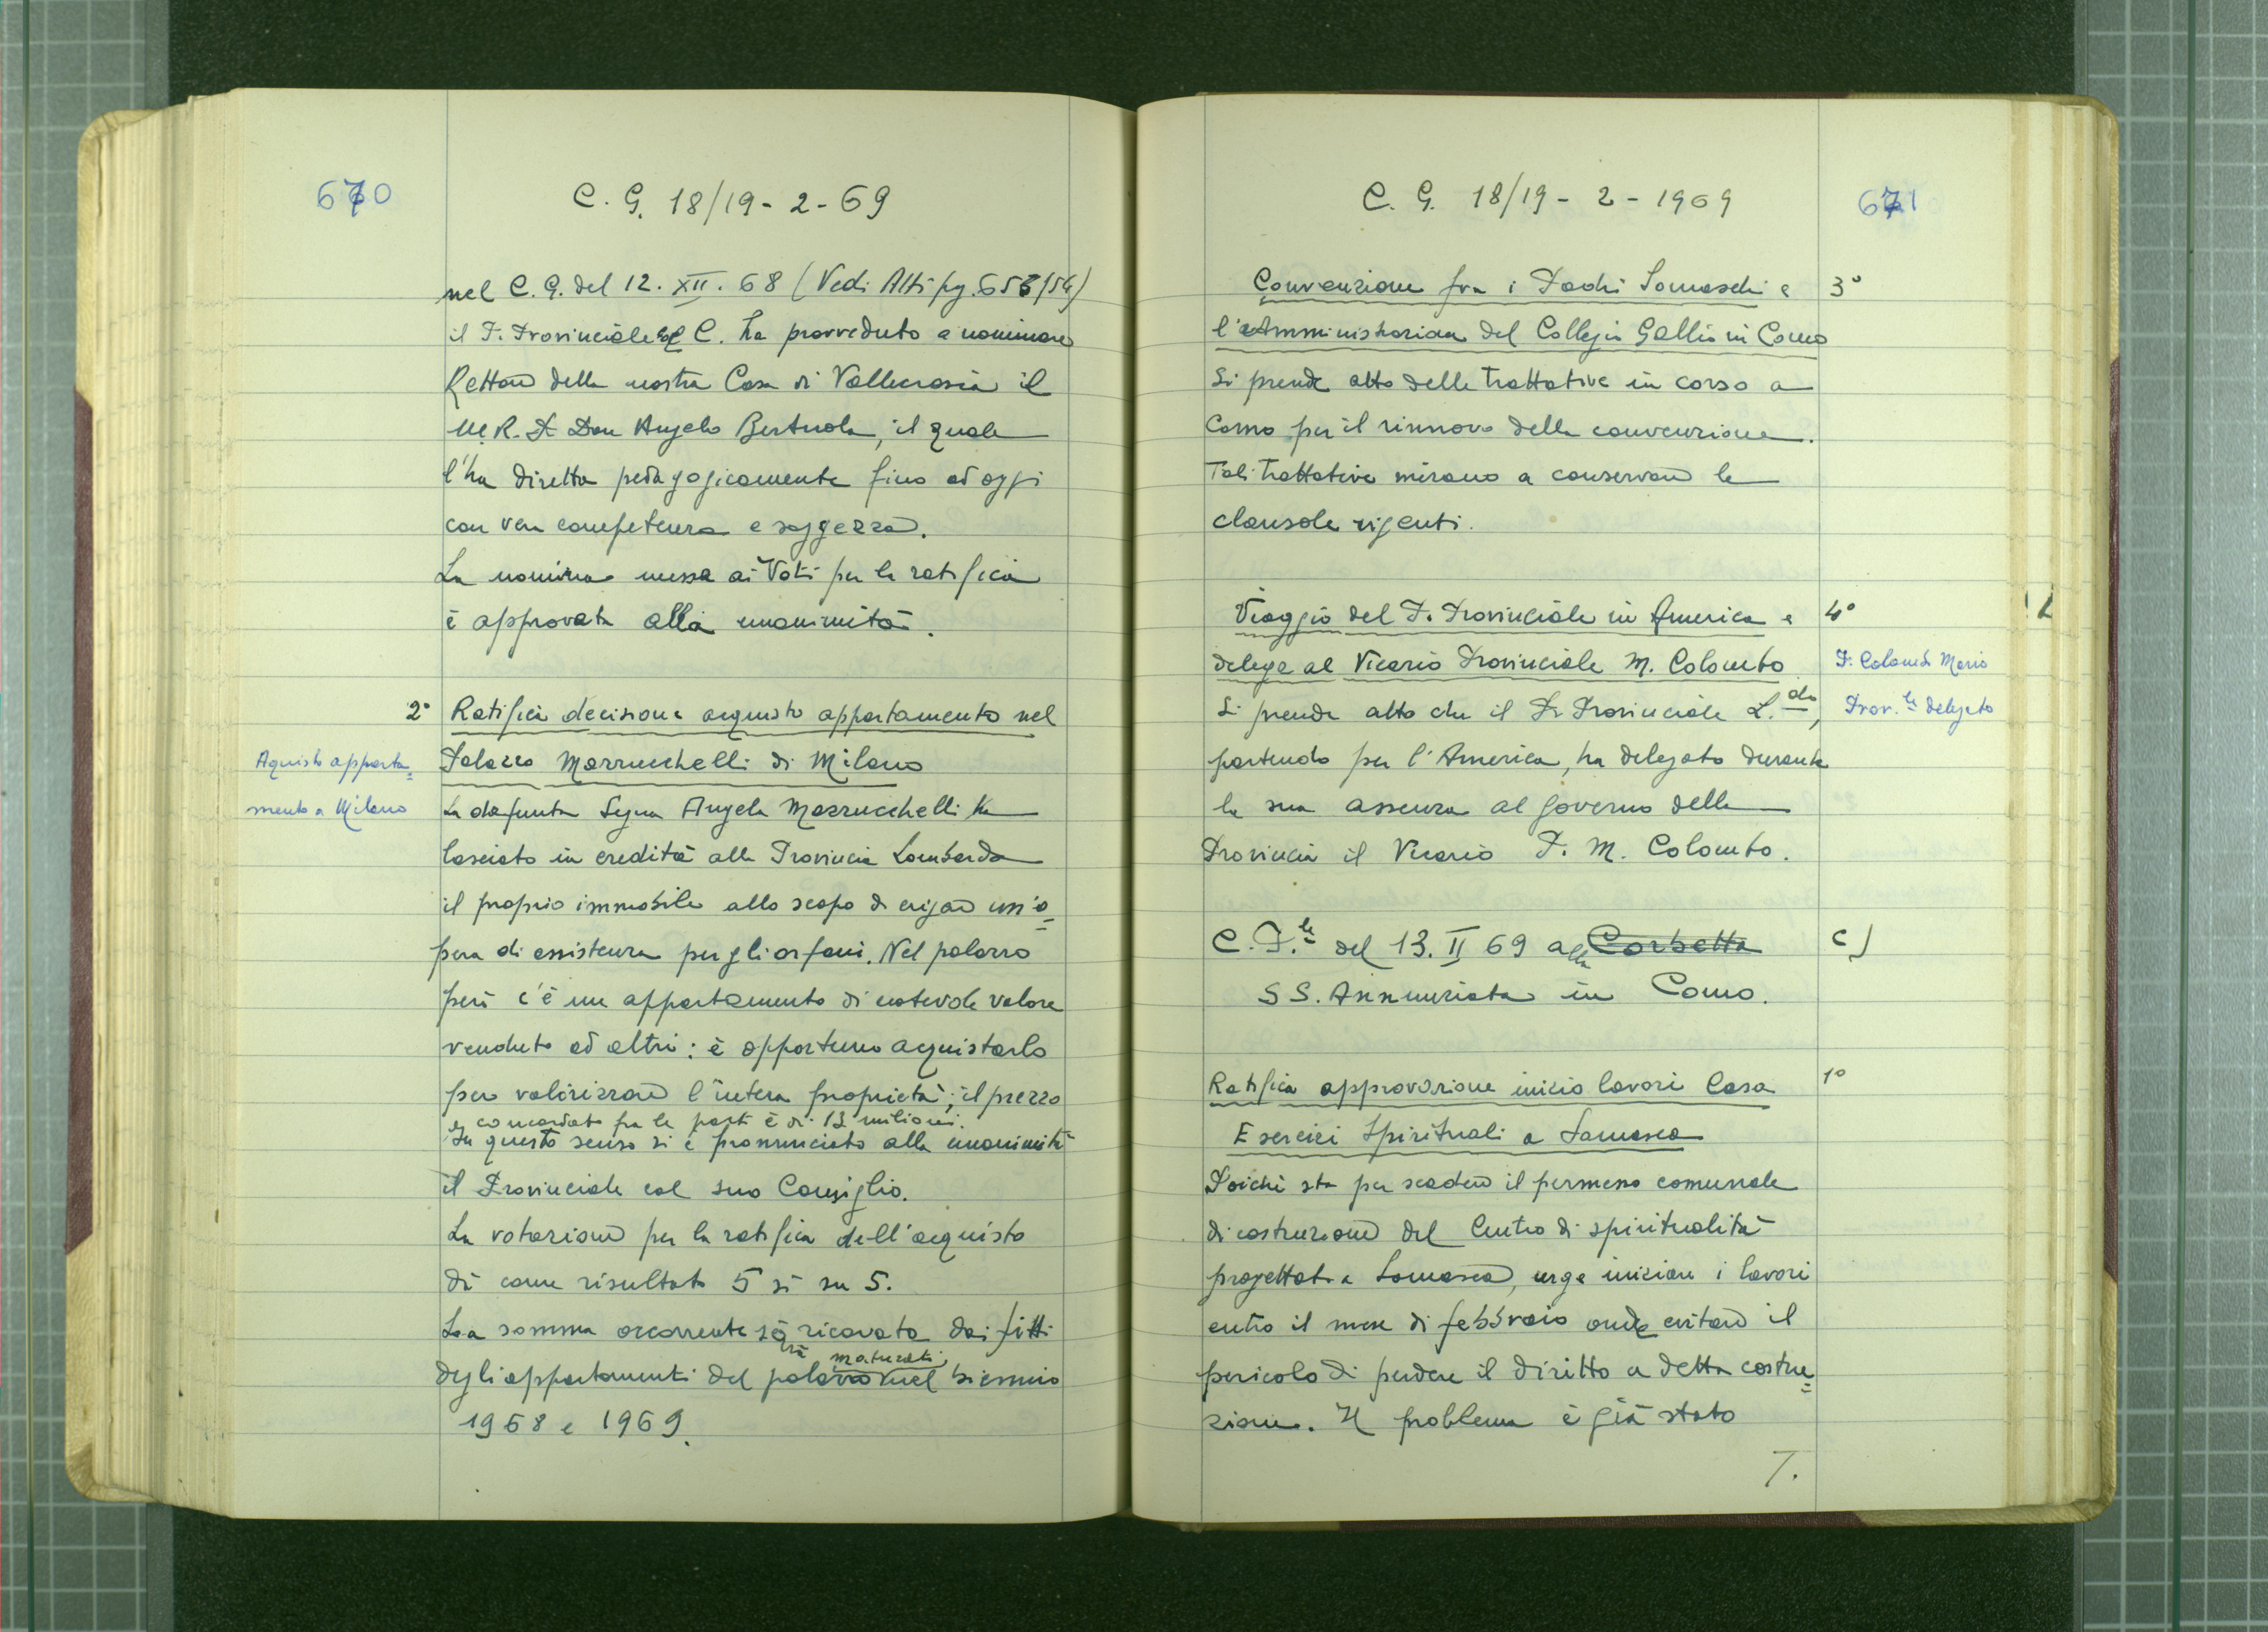 670
C. G. 18/19-2-69
nel C. G. del 12. XII. 68 (Vedi Atti pg. 653/54)
il P. Provinciale col C. ha provveduto a nominare
Rettore della nostra Casa di Vallecrosia il
M. R. P. Don Angelo Bertuola, il quale
l'ha diretta pedagogicamente fino ad oggi
con vera competenza e saggezza.
La nomina messa ai Voti per la ratifica
è approvata alla unanimità.
2° Ratifica decisione acquisto appartamento nel
Palazzo Mazzucchelli di Milano
Aquisto apparta=
mento a Milano
La defunta Sig.na Angela Mazzucchelli ha
lasciato in eredità alla Provincia Lombarda
il proprio immobile allo scopo di erigere un'o=
pera di assistenza per gli orfani. Nel palazzo
però c'è un appartamento di notevole valore
venduto ad altri: è opportuno acquistarlo
per valorizzare l'intera proprietà; il prezzo
concordato fra le parti è di 13 milioni.
In questo senso si è pronunciato alla unanimità
il Provinciale col suo Consiglio.
La votazione per la ratifica dell'acquisto
dà come risultato 5 sì su 5.
La somma occorrente sarà ricavata dai fitti
degli appartamenti del palazzo maturati nel biennio
1968 e 1969.
C. G. 18/19-2-1969
671
Convenzione fra i Padri Somaschi e 3°
l'Amministrazione del Collegio Gallio in Como
Si prende atto delle trattative in corso a
Como per il rinnovo della convenzione.
Tali trattative mirano a conservare le
clausole vigenti.
Viaggio del P. Provinciale in America e 4°
delega al Vicario Provinciale M. Colombo
P. Colombo Mario
Prov.le delegato
Si prende atto che il P. Provinciale L.do,
partendo per l'America, ha delegato durante
la sua assenza al governo della
Provincia il Vicario P. M. Colombo.
C. P.le del 13. II 69 alla Corbetta c)
SS. Annunziata in Como.
Ratifica approvazione inizio lavori Casa 1°
Esercizi Spirituali a Somasca
Poiché sta per scadere il permesso comunale
di costruzione del Centro di spiritualità
progettato a Somasca, urge iniziare i lavori
entro il mese di febbraio onde evitare il
pericolo di perdere il diritto a detta costru=
zione. Il problema è già stato